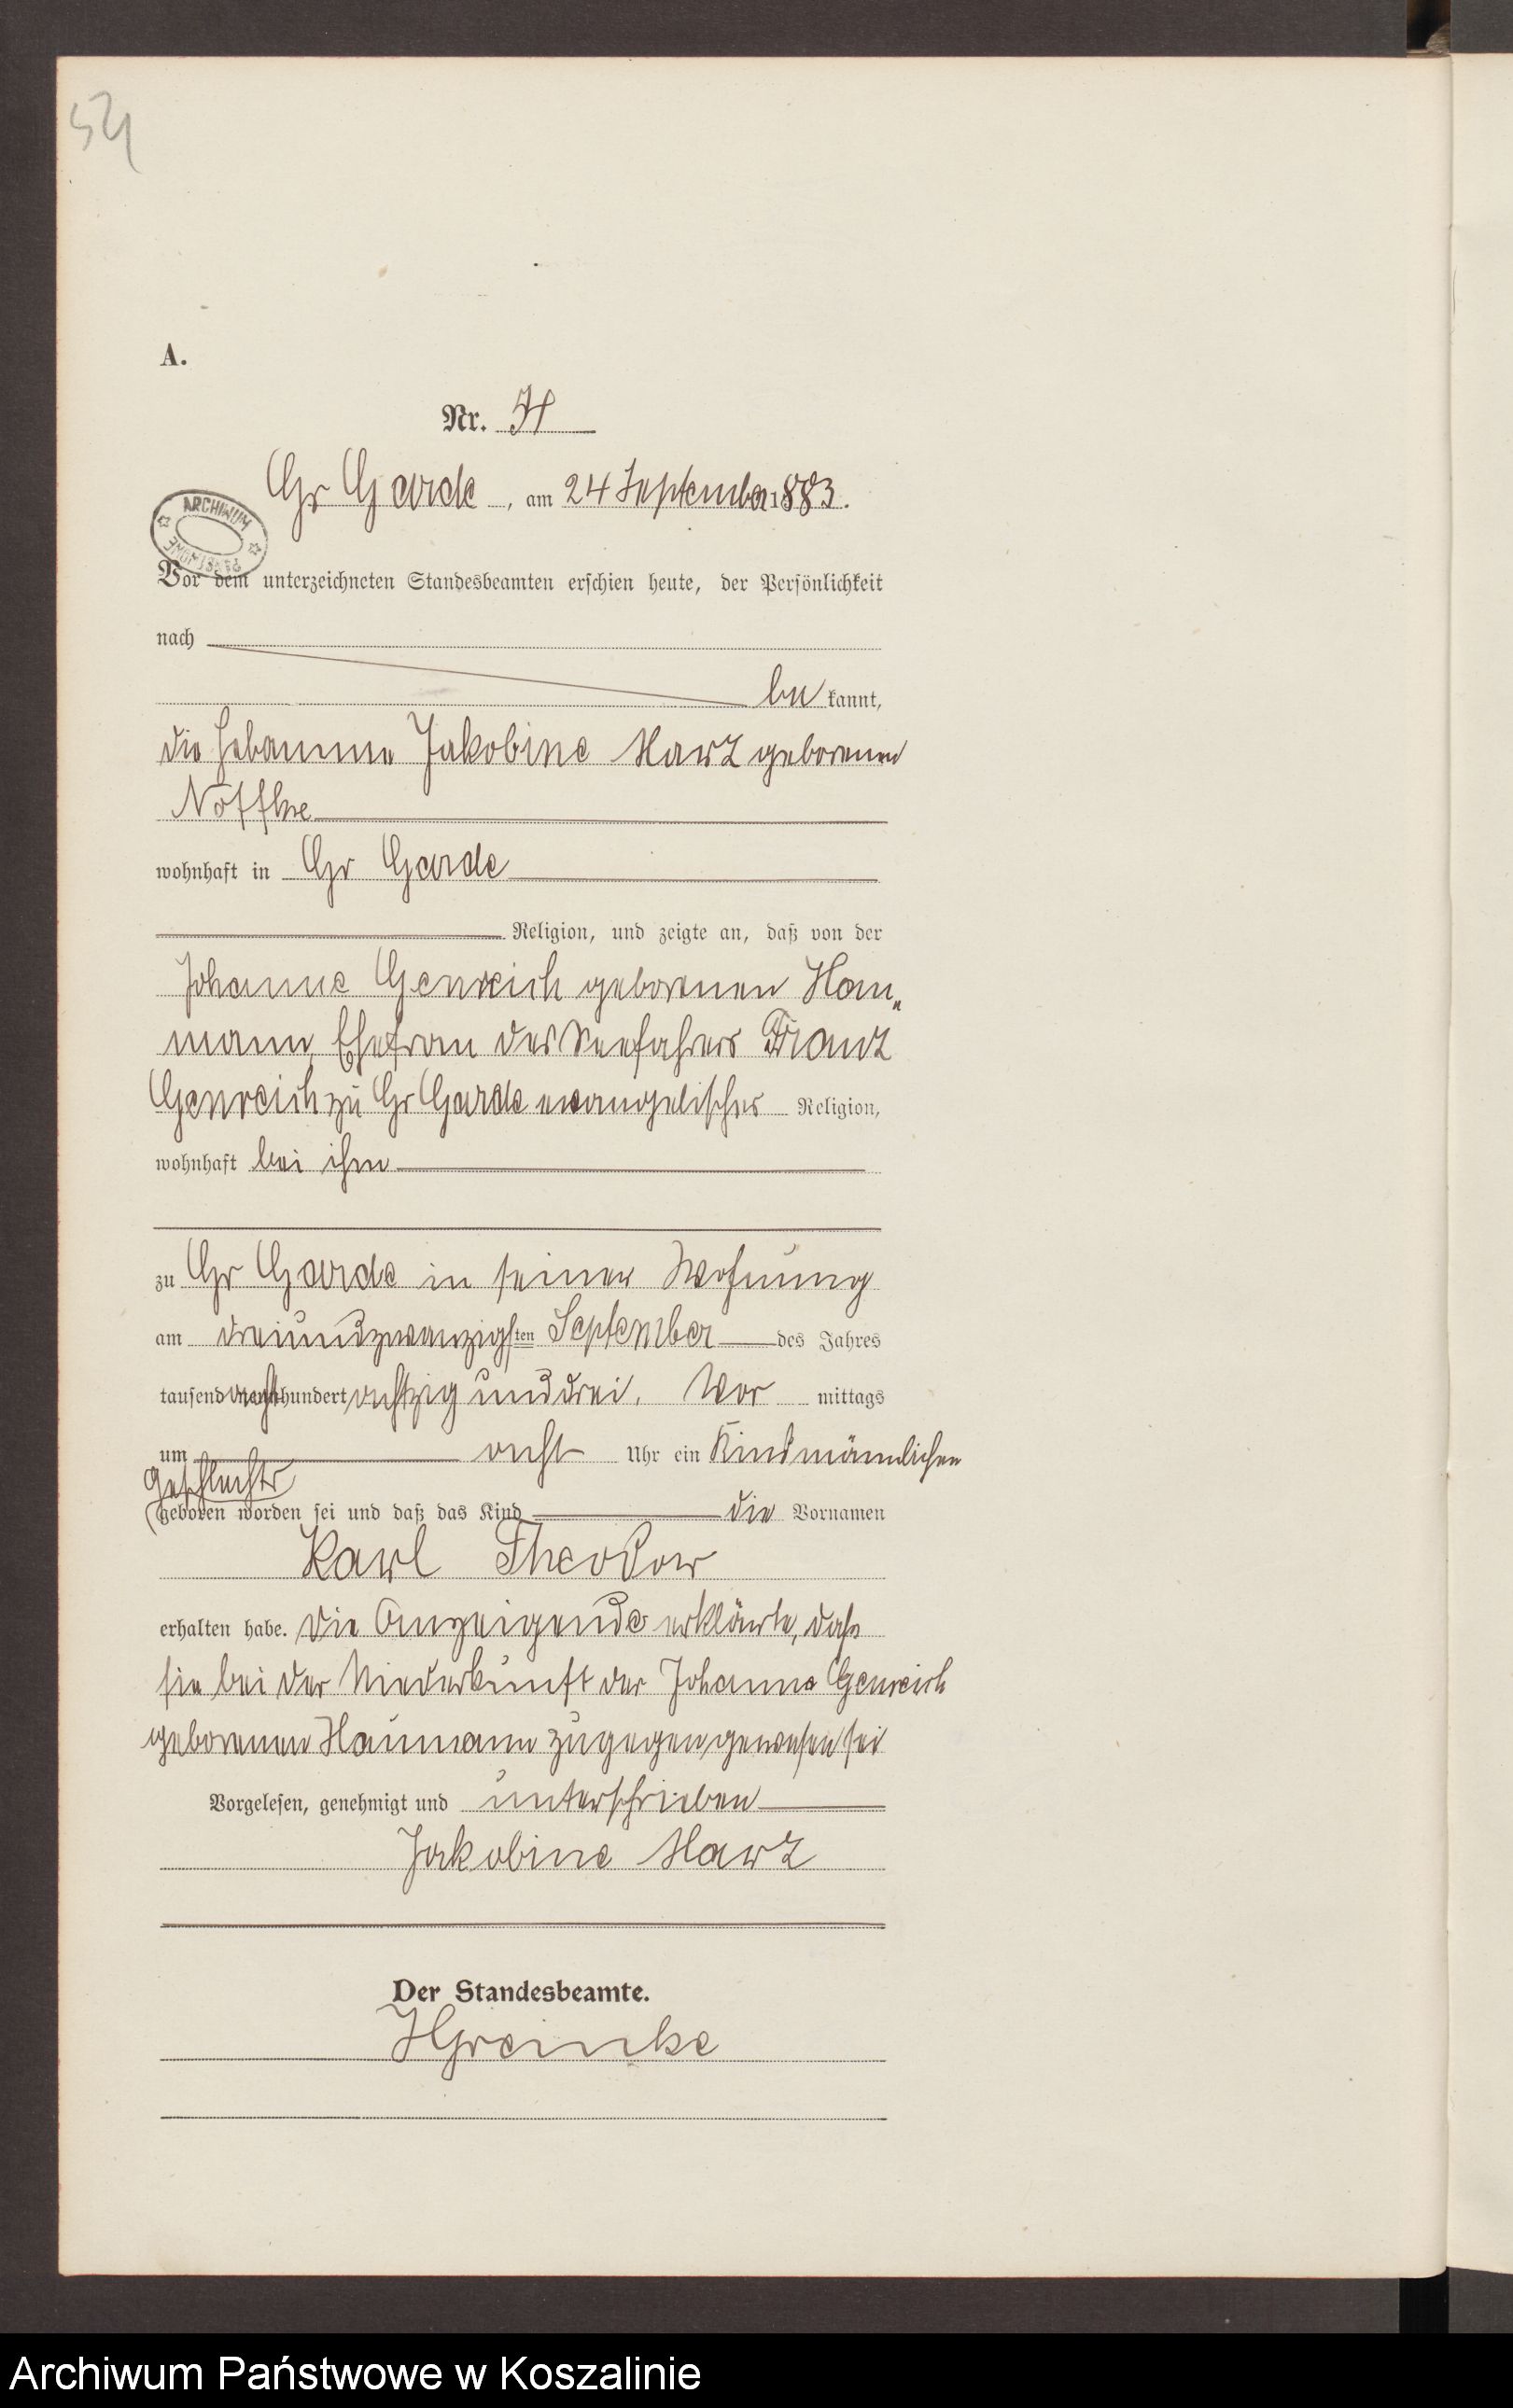 54
A.
Nr. 54
Gr Garde, am 24 September 1883.
ARCHIWUM
PAŃSTWOWE
Vor dem unterzeichneten Standesbeamten erschien heute, der Persönlichkeit
nach
bekannt,
die Hebamme Jakobine Marz geborenen
Nöffke
wohnhaft in Gr Garde
Religion, und zeigte an, daß von der
Johanne Genreich geborenen Hau„
mann, Ehefrau des Seefahrers Franz
Genreich zu Gr Garde evangelischer Religion,
wohnhaft bei ihm
zu Gr Garde in seiner Wohnung
am dreiundzwanzigsten September des Jahres
tausend acht hundert achtzig und drei, Vor mittags
um acht Uhr ein Kind männlichen
Geschlechts
geboren worden sei und daß das Kind die Vornamen
Karl Theodor
erhalten habe. Die Anzeigende erklärte, daß
sie bei der Niederkunft der Johanne Genreich
geborenen Haumann zugegen gewesen sei
Vorgelesen, genehmigt und unterschrieben
Jakobine Marz
Der Standesbeamte.
HGreinke
Archiwum Państwowe w Koszalinie